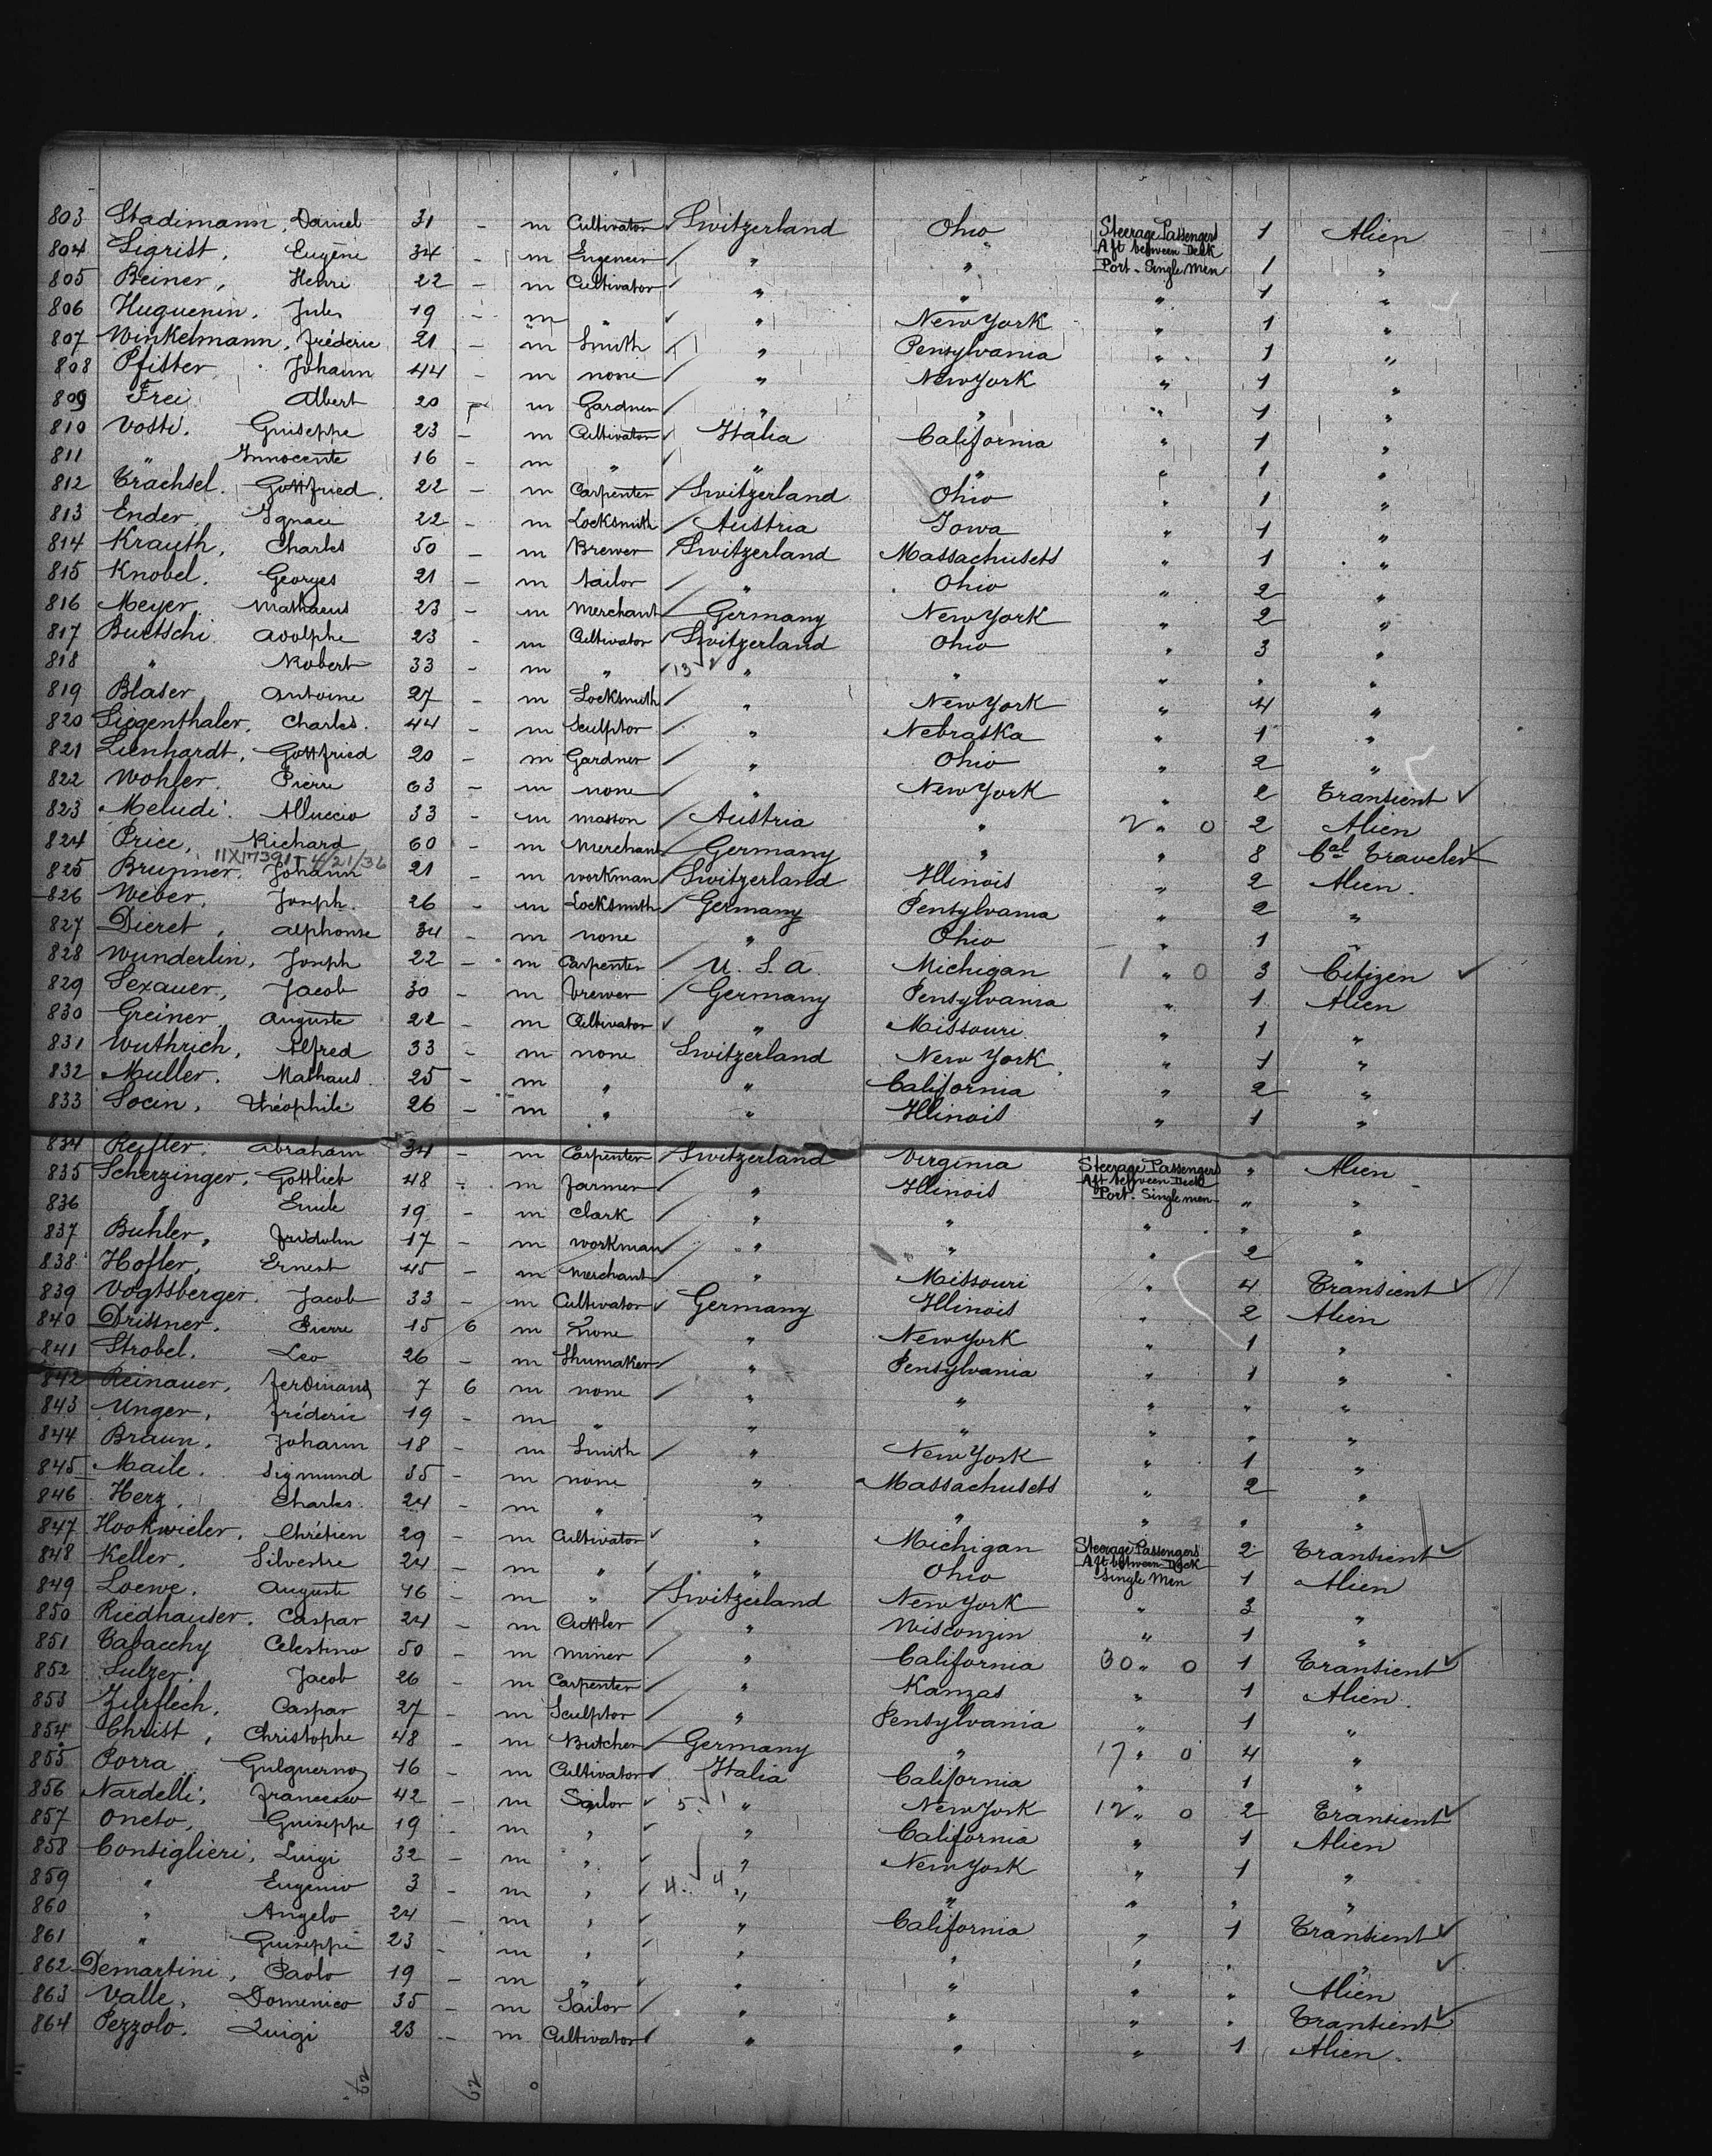 803 Stadimann, Daniel 31 - m Cultivator Switzerland Ohio Steerage Passengers Aft between Deck Port. Single men 1 Alien
804 Sigrist, Eugène 34 - m Engeneer " " 1 "
805 Beiner, Henri 22 - m Cultivator " " " 1 "
806 Huguenin, Jules 19 - m " " New York " 1 "
807 Winkelmann, Fréderic 21 - m Smith " Pensylvania " 1 "
808 Pfister, Johann 44 - m none " New York " 1 "
809 Frei Albert 20 - m Gardner " " " 1 "
810 Votti. Guisephe 23 - m Cultivator Italia California " 1 "
811 " Innocente 16 - m " " " " 1 "
812 Trachsel. Gottfried. 22 - m Carpenter Switzerland Ohio " 1 "
813 Ender Ignaci 22 - m Locksmith Austria Iowa " 1 "
814 Krauth, Charles 50 - m Brewer Switzerland Massachusets " 1 "
815 Knobel. Georges 21 - m tailor " Ohio " 2 "
816 Meyer. Mathaeus 23 - m Merchant Germany New York " 2 "
817 Buetschi Adolphe 23 - m Cultivator Switzerland Ohio " 3 "
818 " Robert 33 - m " 13 " " " " "
819 Blaser Antoine 27 - m Locksmith " New York " 4 "
820 Siegenthaler, Charles. 44 - m Sculptor " Nebraska " 1 "
821 Lienhardt, Gottfried 20 - m Gardner " Ohio " 2 "
822 Wohler. Pierre 63 - m none " New York " 2 Transient
823 Meludi. Alluccio 33 - m Masson Austria " 2 " 0 2 Alien
824 Price, Richard 60 - m Merchant Germany " " 8 Cal Traveler
11X17391-4/21/36
825 Brunner. Johann 21 - m workman Switzerland Illinois " 2 Alien.
826 Weber. Joseph. 26 - m Locksmith Germany Pensylvania " 2 "
827 Dieret, Alphonse 34 - m none " Ohio " 1 "
828 Wunderlin, Joseph 22 - m Carpenter U. S. A. Michigan 1 " 0 3 Citizen
829 Sexauer, Jacob 30 - m brewer Germany Pensylvania " 1 Alien
830 Greiner Auguste 22 - m Cultivator " Missouri " 1 "
831 Wuthrich, Alfred 33 - m none Switzerland New York. " 1 "
832 Muller. Mathaus. 25 - m " " California " 2 "
833 Socin, Théophile 26 - m " " Illinois " 1 "
834 Reifler. Abraham 34 - m Carpenter Switzerland Virginia Steerage Passengers Aft between Deck Port. Single men " Alien
835 Scherzinger, Gottlieb 48 - m farmer " Illinois " "
836 " Emile 19 - m clark " " " " "
837 Buhler, Fridolin 17 - m workman " " " 2 "
838 Hofler, Ernest 45 - m Merchant " Missouri " 4 Transient
839 Vogtsberger. Jacob 33 - m Cultivator Germany Illinois " 2 Alien
840 Drissner. Pierre 15 6 m none " New York " 1 "
841 Strobel. Leo 26 - m Shumaker " Pensylvania " 1 "
842 Reinauer, Ferdinand 7 6 m none " " " " "
843 Unger, Fréderic 19 - m " " " " " "
844 Braun, Johann 18 - m Smith " New York " 1 "
845 Maile. Sigmund 35 - m none " Massachusets " 2 "
846 Herz, Charles. 24 - m " " " " " "
847 Hookwieler, Chrétien 29 - m Cultivator " Michigan Steerage Passengers Aft between Deck Single Men 2 Transient
848 Keller. Silvestre 24 - m " " Ohio 1 Alien
849 Loewe. Auguste 46 - m " Switzerland New York " 3 "
850 Riedhauser. Caspar 24 - m Cuttler " Wisconzin " 1 "
851 Tabacchy Celestino 50 - m miner " California 30 " 0 1 Transient
852 Sulzer. Jacob 26 - m Carpenter " Kanzas " 1 Alien.
853 Zurflech, Caspar 27 - m Sculptor " Pensylvania " 1 "
854 Christ, Christophe 48 - m Butcher Germany " 17 " 0 4 "
855 Porra Gulguerno 16 - m Cultivator Italia California " 1 "
856 Nardelli, Francesco 42 - m Sailor 5 1 " New York 12 " 0 2 Transient
857 Oneto, Guiseppe 19 - m " " California " 1 Alien
858 Consiglieri, Luigi 32 - m " " New York " 1 "
859 " Eugenio 3 - m " 4 4 " " " " "
860 " Angelo 24 - m " " California " 1 Transient
861 " Guiseppe 23 - m " " " " " "
862 Demartini, Paolo 19 - m " " " " " Alien
863 Valle, Domenico 35 - m Sailor " " " " Transient
864 Pezzolo. Luigi 23 - m Cultivator " " " 1 Alien.
62 62 0